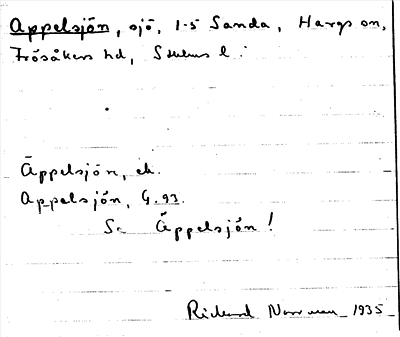 Appelsjön, sjö, 1-5 Sanda, Hargs sn,
Frösåkers hd, Sthlms l.
Äppelsjön, ek.
Appelsjön, G. 93.
Se Äppelsjön!
Rickard Norrman 1935